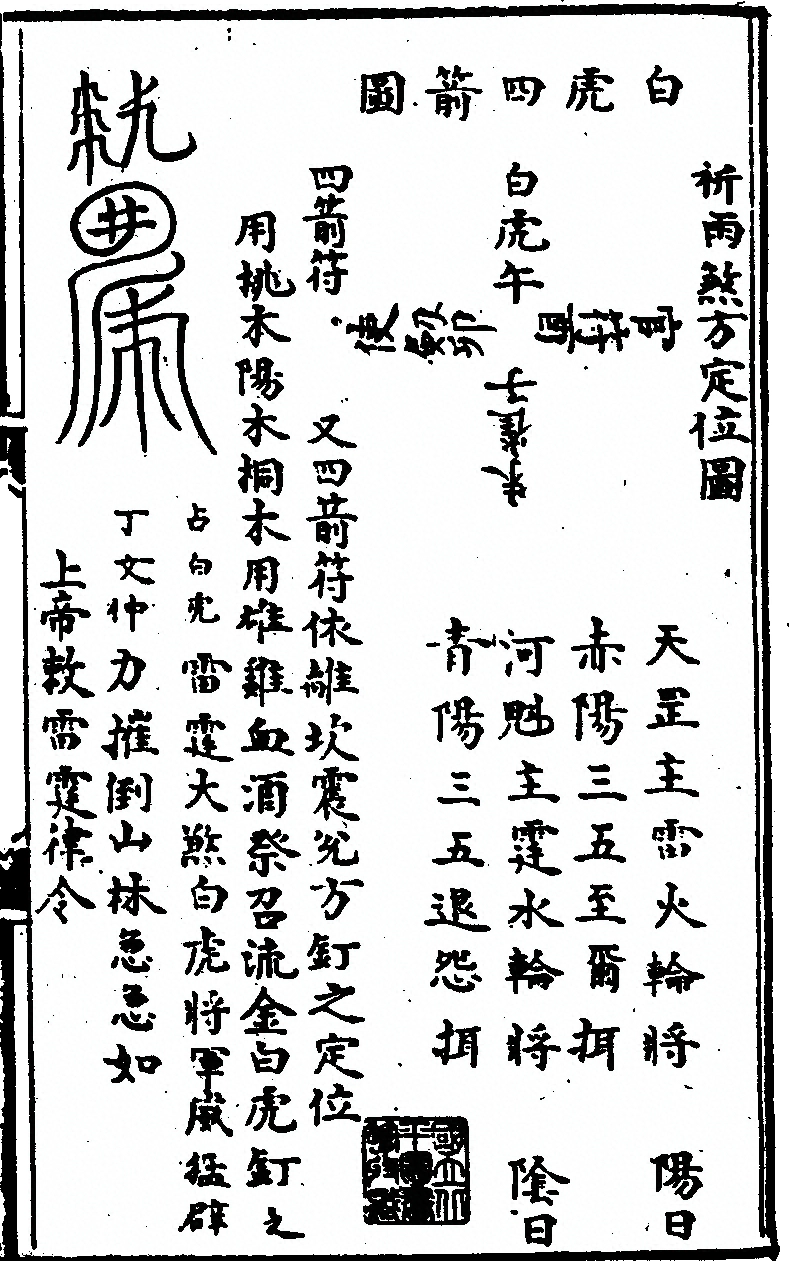 白虎四箭圖
祈雨煞方定位圖
天罡主雷火輪將 陽日
赤陽三五至爾揖
白虎午
河魁主霆水輪將 陰日
青陽三五退怨揖
卯
使
四箭符
又四箭符依離坎震兌方釘之定位
用桃木陽木桐木用雄雞血酒祭召流金白虎釘之
占白虎雷霆大煞白虎將軍威猛辟
丁文仲力摧倒山林急急如
上帝敕雷霆律令